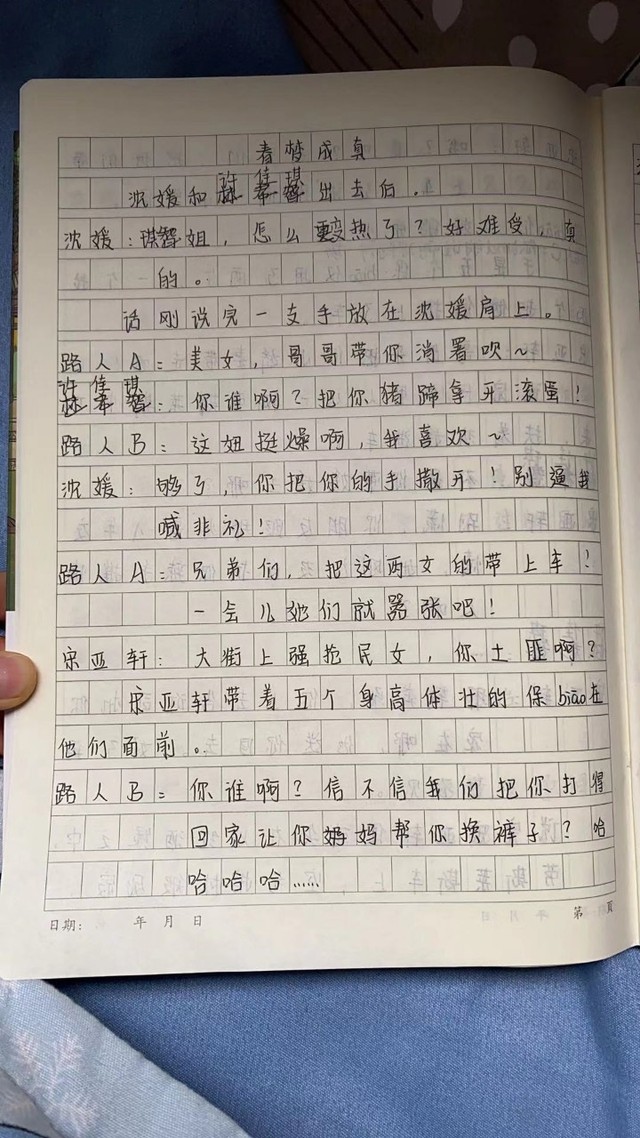 春梦成真
沈媛和许隹琪出去后.
沈媛:琪智姐，怎么变热了?好难受，真
的。
话刚说完一支手放在沈媛肩上。
路人A:美女，哥哥带你消署呗～
许隹琪:你谁啊?把你猪蹄拿开滚蛋!
路人B:这妞挺爆啊，我喜欢～
沈媛:够了，你把你的手撒开!别逼我
喊非礼!
路人A:兄弟们，把这两女的带上车!
一会儿她们就嚣张吧!
宋亚轩:大街上强抢民女，你土匪啊?
宋亚轩带着五个身高体壮的保biāo在
他们面前。
路人B:你谁啊?信不信我们把你打得
回家让你妈妈帮你换裤子?哈
哈哈哈……
日期: 年 月 日 第 页